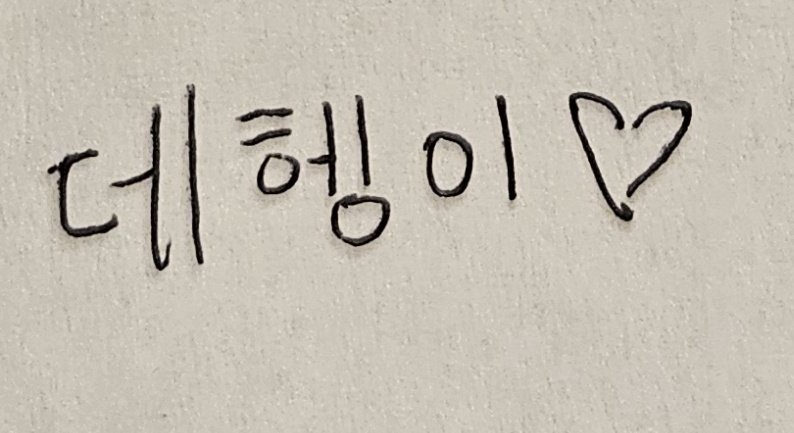 데헹이♡